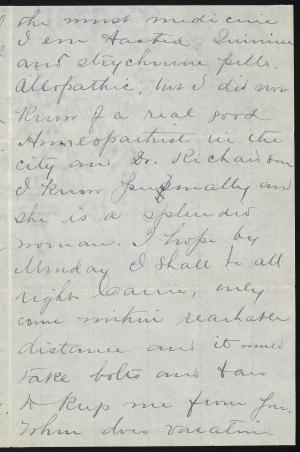 the must medicine
I ever tasted. Quinine
and strychnine pills.
Allopathic, but I did not
know of a real good
Homeopathist in the
city and Dr. Richardson
I know personally and
she is a splendid
woman. I hope by
Monday I shall be all
right Carrie, only
come within reachable
distance and it would
take bolts and bars
to keep me from you.
When does vacation